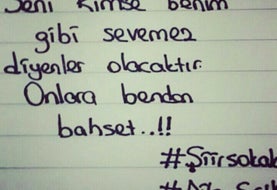 Seni kimse benim
gibi sevemez
diyenler olacaktır.
Onlara benden
bahset..!!
#Şiirsokak